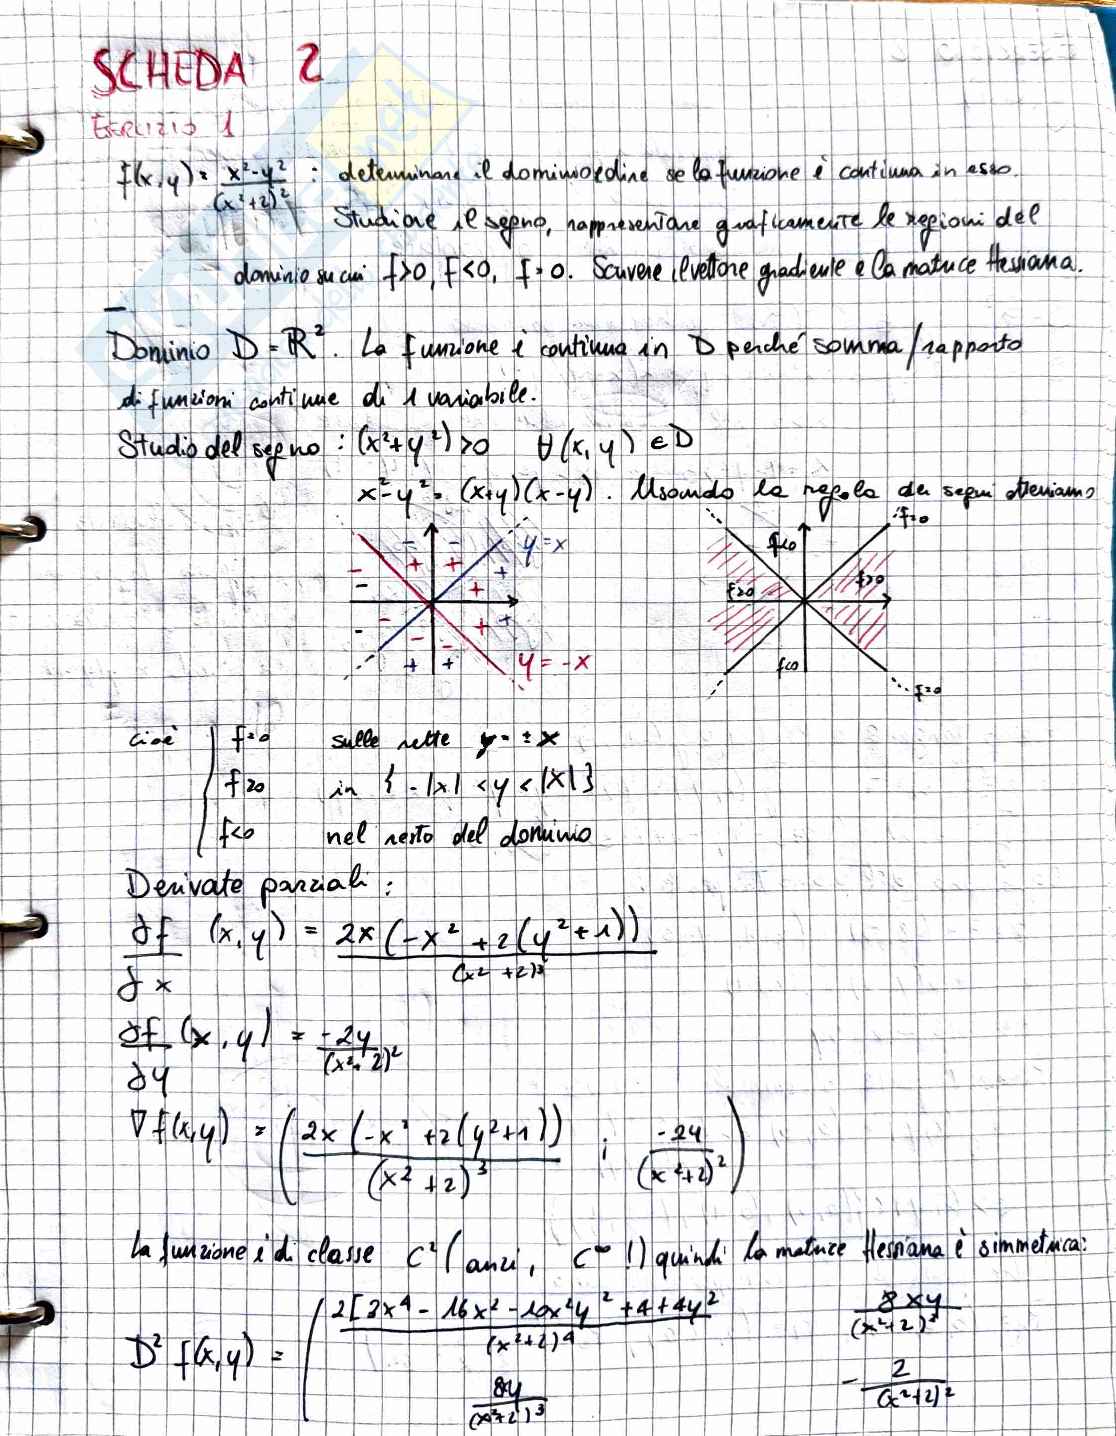 SCHEDA 2
ESERCIZIO 1
f(x,y) = x²-y² / (x²+2)² : determinare il dominio e dire se la funzione è continua in esso.
Studiare il segno, rappresentare graficamente le regioni del
dominio su cui f>0, f<0, f=0. Scrivere il vettore gradiente e la matrice Hessiana.
Dominio D = ℝ². La funzione è continua in D perché somma/rapporto
di funzioni continue di 1 variabile.
Studio del segno : (x²+y²)>0 ∀(x,y) ∈ D
x²-y² = (x+y)(x-y). Usando la regola dei segni otteniamo
y=x
y=-x
f=0
f<0
f>0
f>0
f<0
f=0
cioè { f=0 sulle rette y = ±x
f>0 in {-|x| < y < |x|}
f<0 nel resto del dominio
Derivate parziali:
∂f/∂x (x,y) = 2x(-x²+2(y²+1)) / (x²+2)³
∂f/∂y (x,y) = -2y / (x²+2)²
∇f(x,y) = ( 2x(-x²+2(y²+1)) / (x²+2)³ ; -2y / (x²+2)² )
La funzione è di classe C² (anzi, C^∞ !) quindi la matrice Hessiana è simmetrica:
D² f(x,y) = ( 2[3x⁴ - 16x² - 10x²y² + 4 + 4y² / (x²+2)⁴ 8xy / (x²+2)³
8y / (x²+2)³ - 2 / (x²+2)²